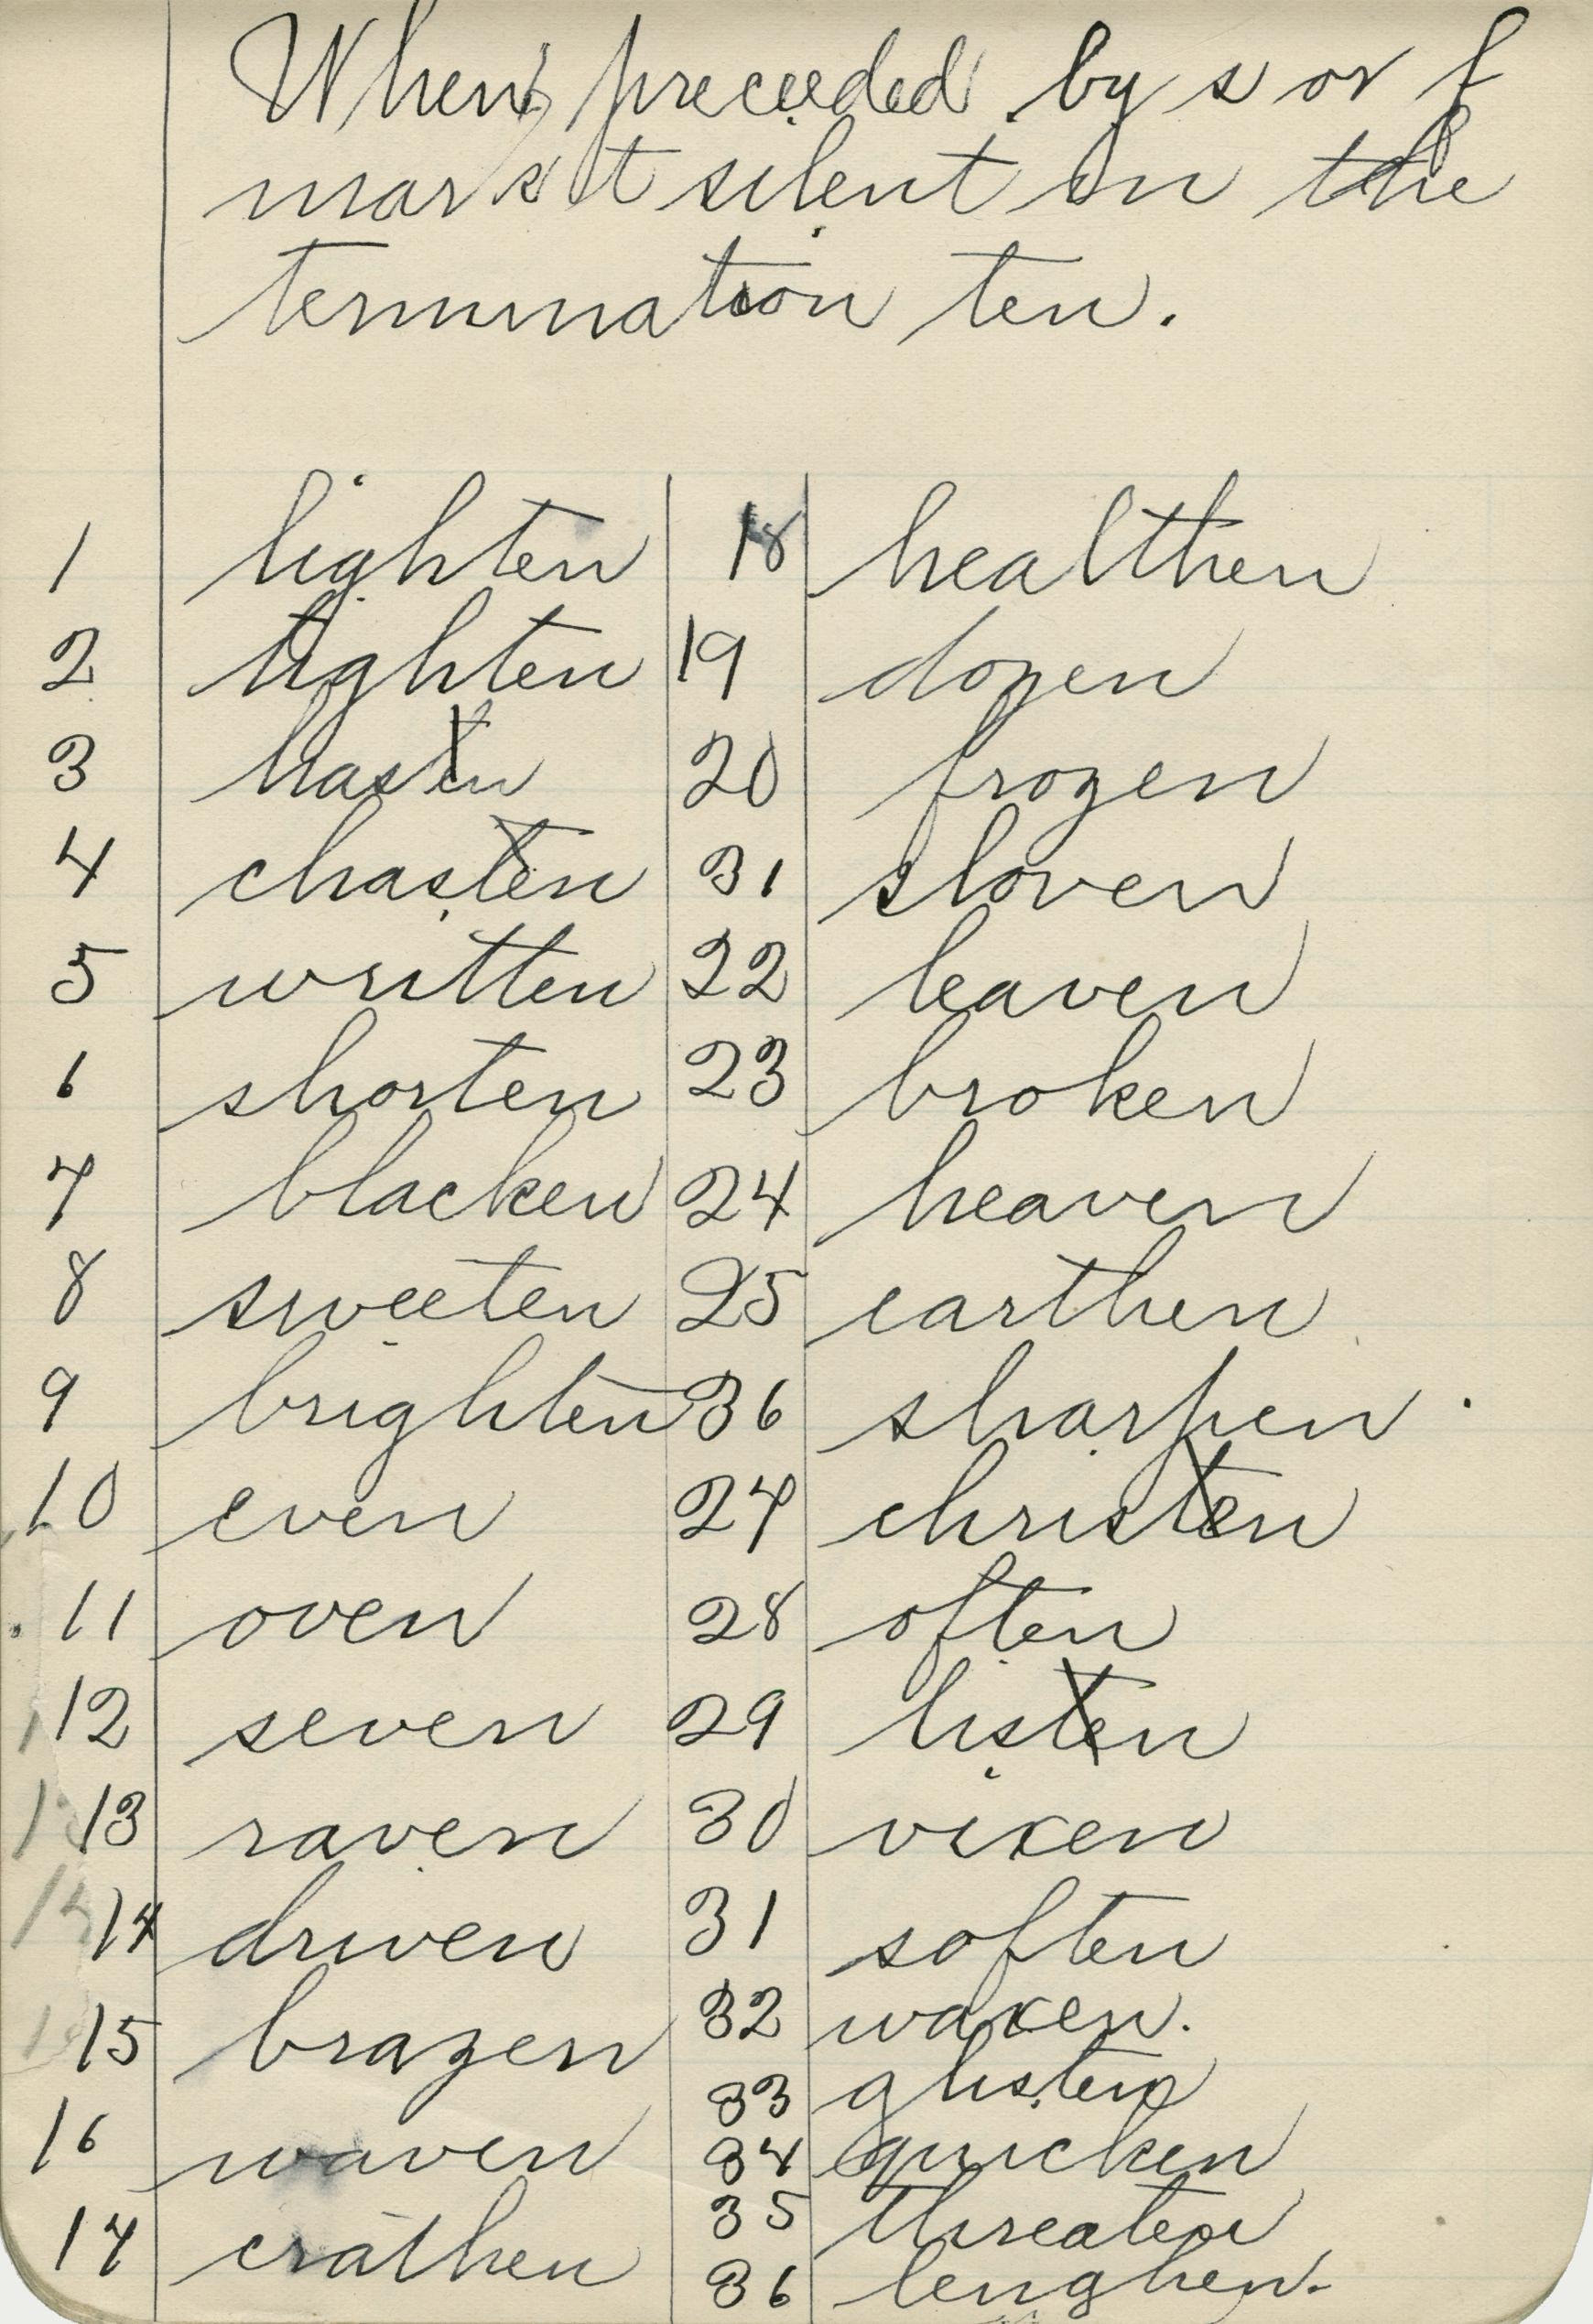 When preceeded by s or f
mark t silent in the
termination ten.
1 lighten 18 healthen
2 tighten 19 dozen
3 hasten 20 frozen
4 chasten 31 sloven
5 written 22 leaven
6 shorten 23 broken
7 blacken 24 heaven
8 sweeten 25 earthen
9 brighten 36 sharpen
10 even 27 christen
11 oven 28 often
12 seven 29 listen
13 raven 30 vixen
14 driven 31 soften
15 brazen 32 waxen.
16 waven 33 glisten
17 crathen 34 quicken
35 threaten
36 lenghen.